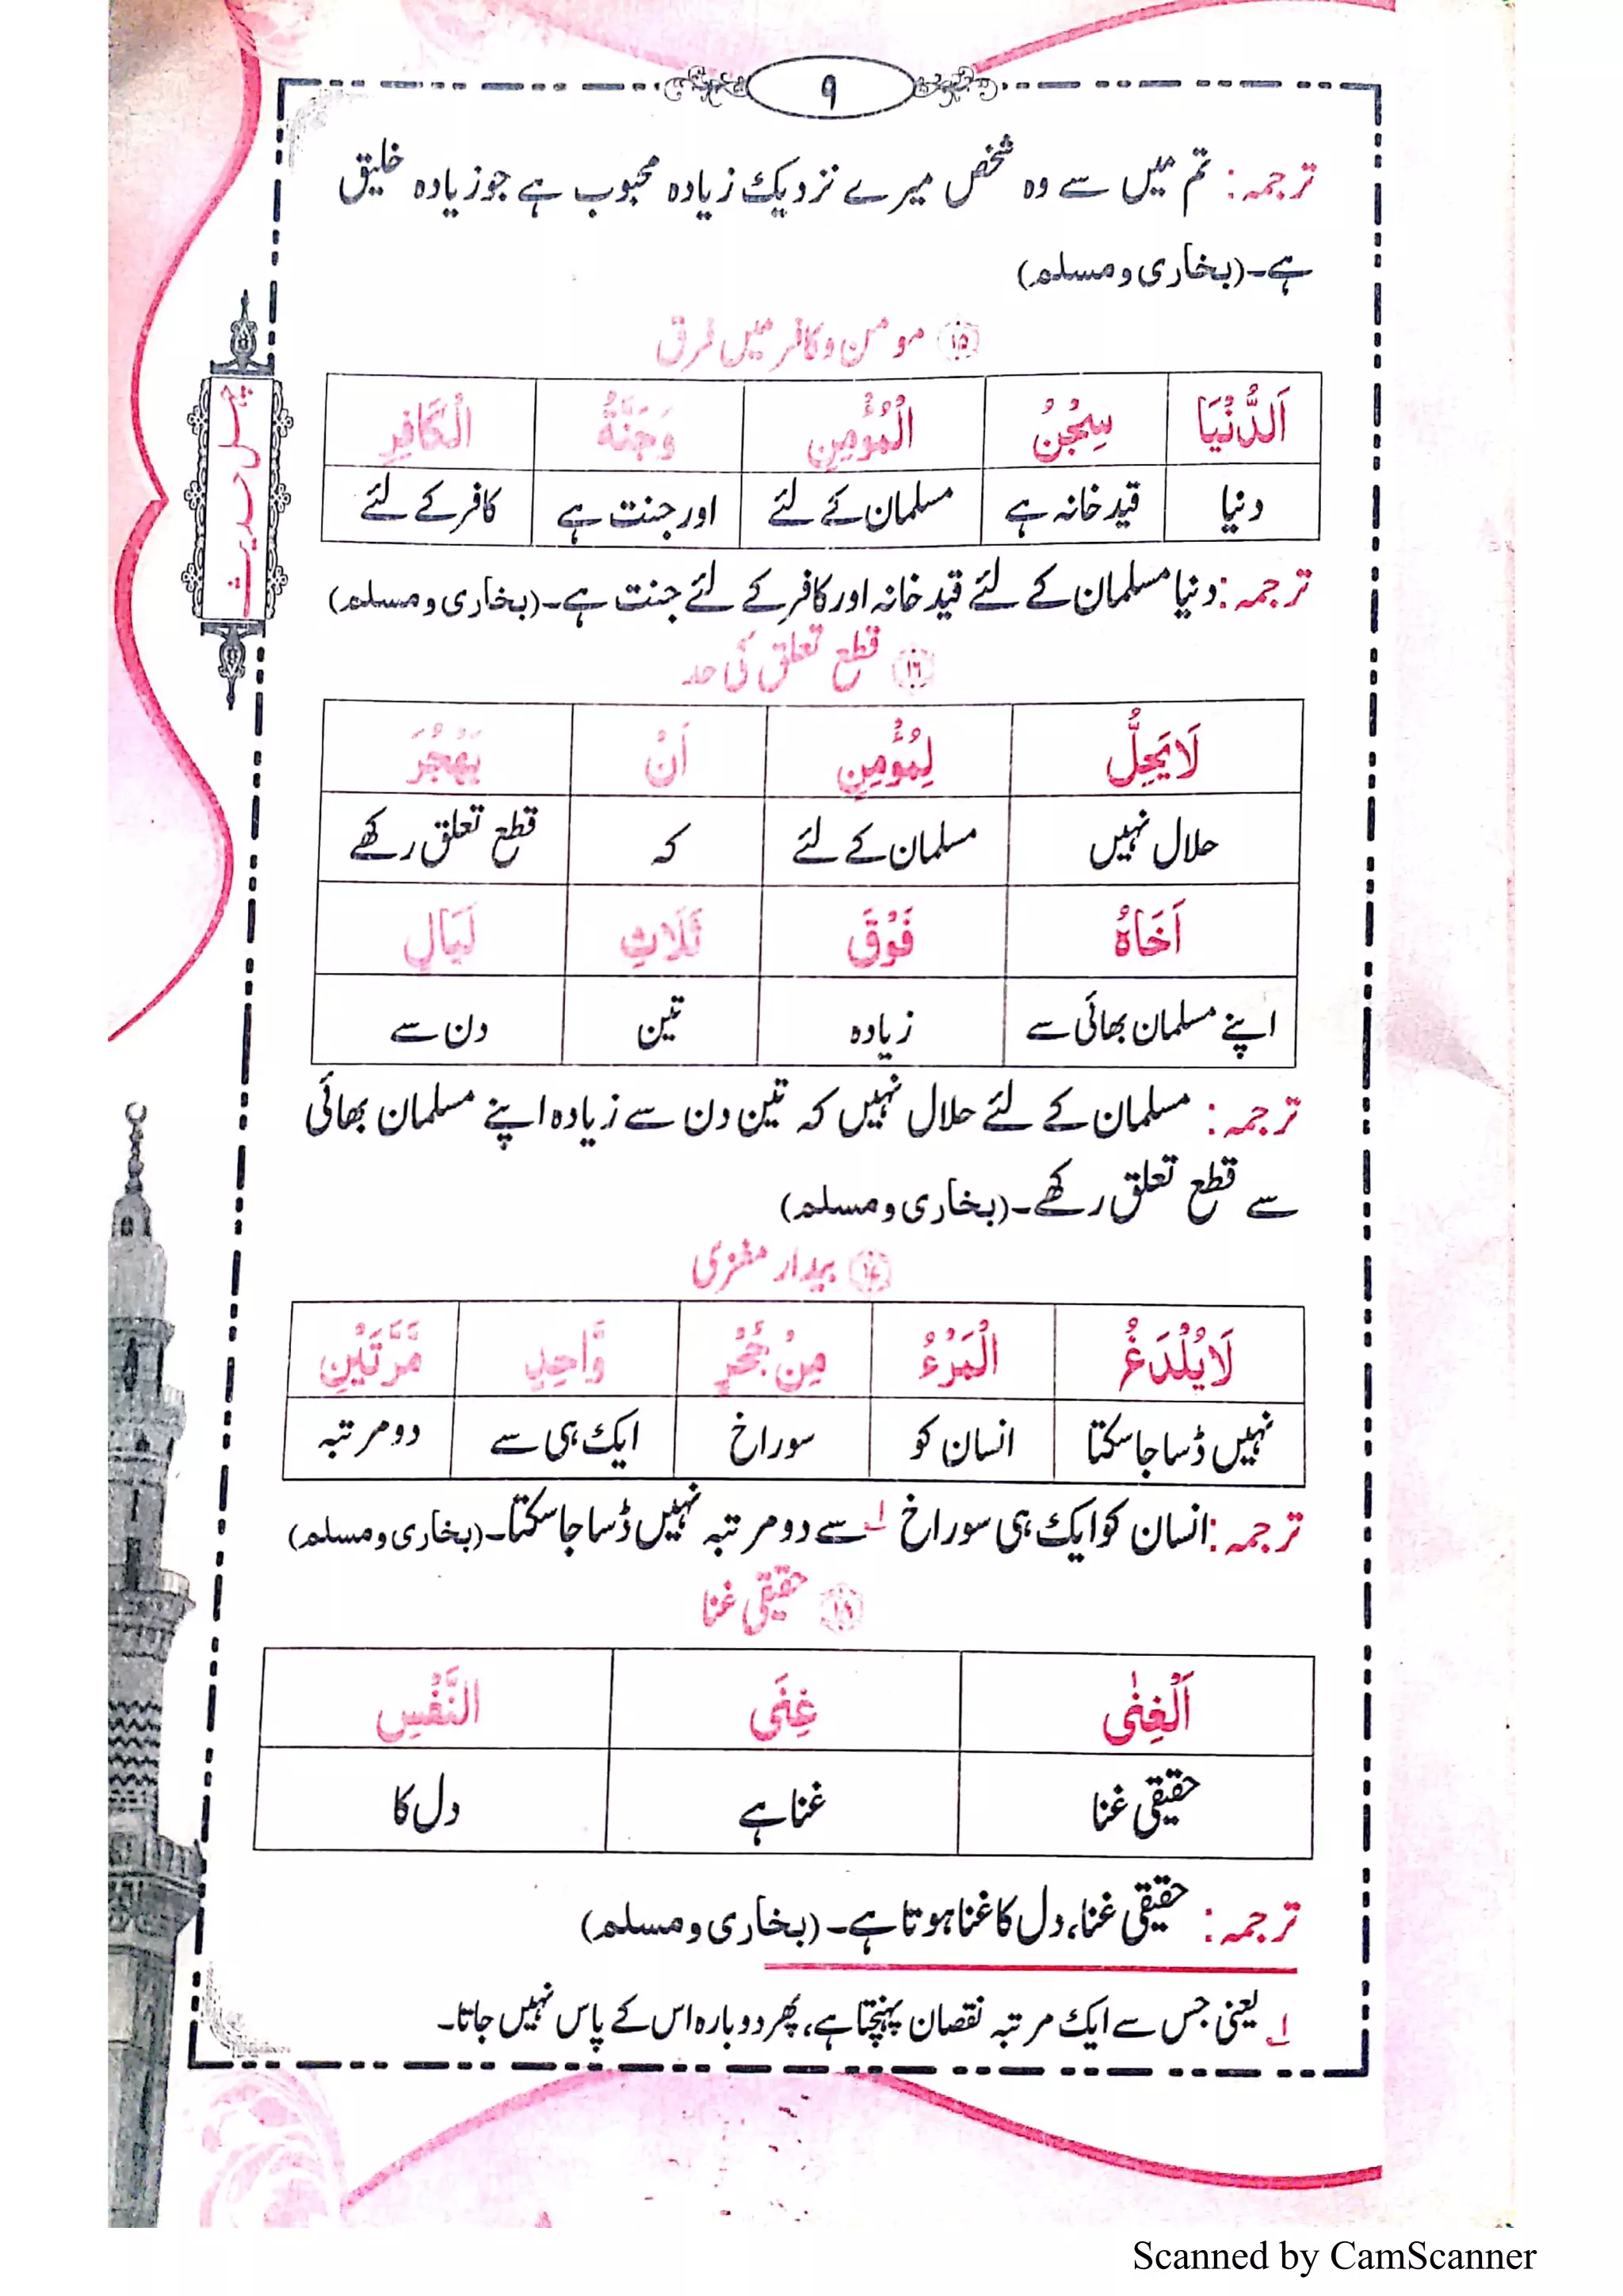 ۹
ترجمہ: تم میں سے وہ شخص میرے نزدیک زیادہ محبوب ہے جو زیادہ خلیق
ہے۔ (بخاری و مسلم)
۱۵ مومن و کافر میں فرق
اَلدُّنْيَا سِجْنُ الْمُؤْمِنِ وَجَنَّةُ الْكَافِرِ
دنیا قید خانہ ہے مسلمان کے لئے اور جنت ہے کافر کے لئے
ترجمہ: دنیا مسلمان کے لئے قید خانہ اور کافر کے لئے جنت ہے۔ (بخاری و مسلم)
۱۶ قطع تعلق کی حد
لَا يَحِلُّ لِمُؤْمِنٍ اَنْ يَهْجُرَ
حلال نہیں مسلمان کے لئے کہ قطع تعلق رکھے
اَخَاهُ فَوْقَ ثَلَاثِ لَيَالٍ
اپنے مسلمان بھائی سے زیادہ تین دن سے
ترجمہ: مسلمان کے لئے حلال نہیں کہ تین دن سے زیادہ اپنے مسلمان بھائی
سے قطع تعلق رکھے۔ (بخاری و مسلم)
۱۷ بیدار مغزی
لَا يُلْدَغُ الْمَرْءُ مِنْ جُحْرٍ وَّاحِدٍ مَرَّتَيْنِ
نہیں ڈسا جا سکتا انسان کو سوراخ ایک ہی سے دو مرتبہ
ترجمہ: انسان کو ایک ہی سوراخ ۱؎ سے دو مرتبہ نہیں ڈسا جا سکتا۔ (بخاری و مسلم)
۱۸ حقیقی غنا
اَلْغِنٰى غِنَى النَّفْسِ
حقیقی غنا غنا ہے دل کا
ترجمہ: حقیقی غنا، دل کا غنا ہوتا ہے۔ (بخاری و مسلم)
۱؎ یعنی جس سے ایک مرتبہ نقصان پہنچتا ہے، پھر دوبارہ اس کے پاس نہیں جاتا۔
چہل حدیث
Scanned by CamScanner